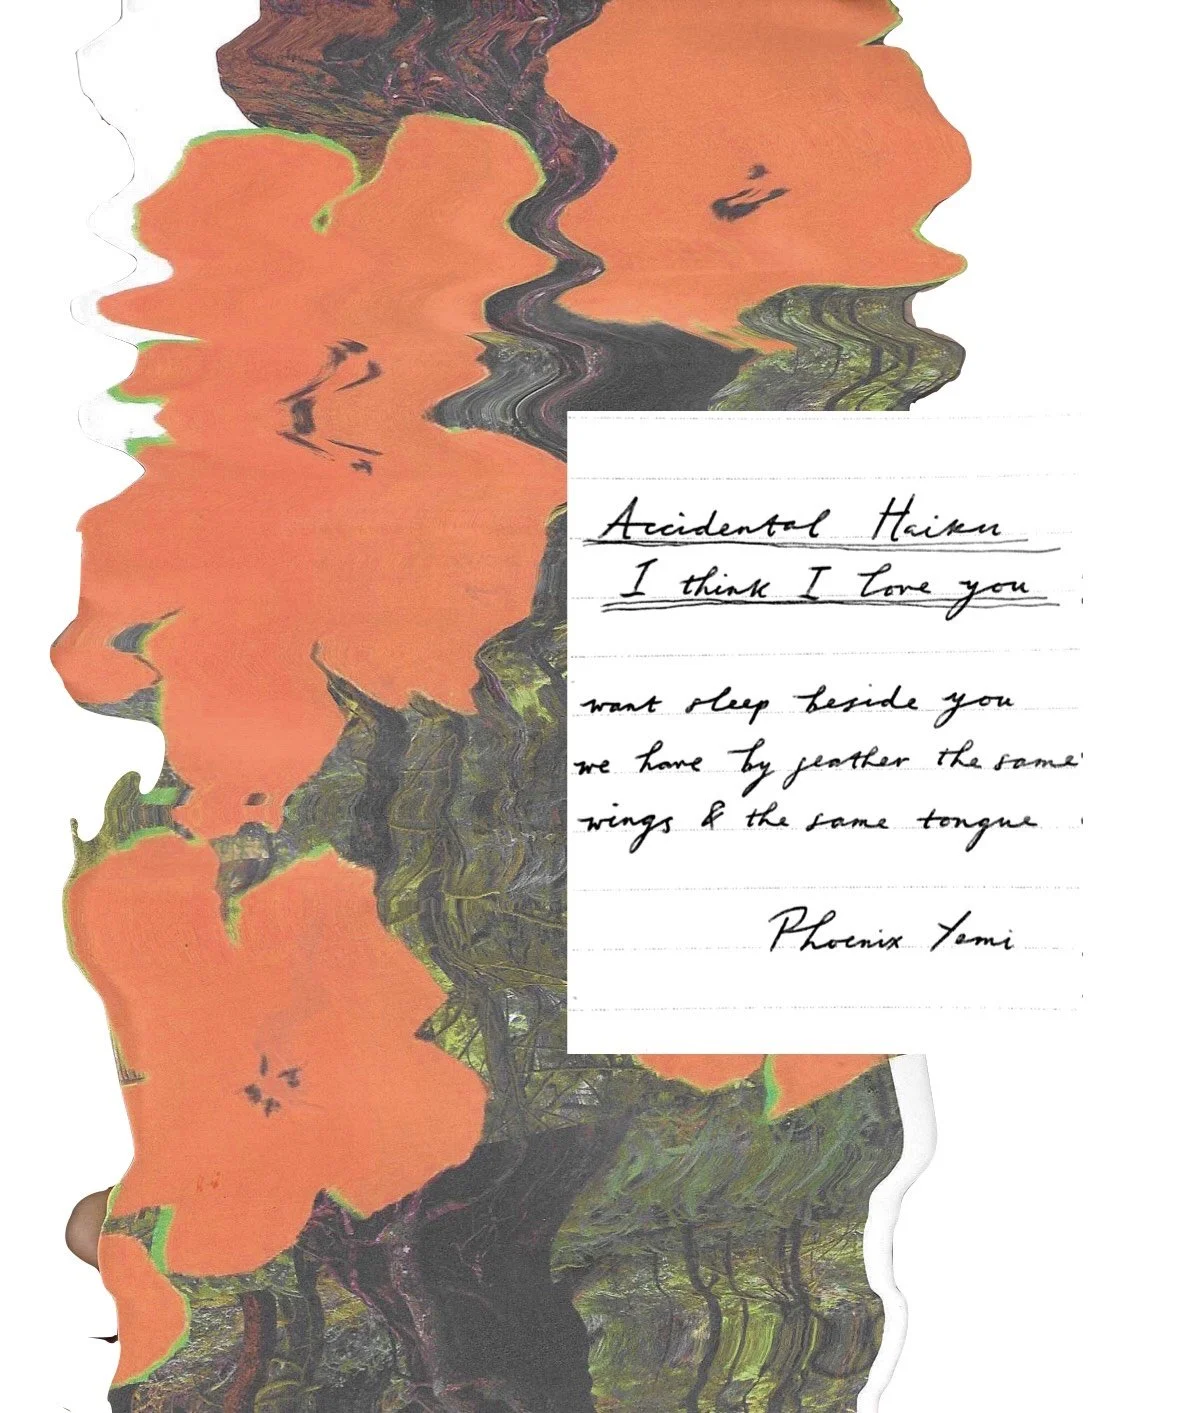 Accidental Haiku
I think I love you
want sleep beside you
we have by feather the same
wings & the same tongue
Phoenix Yemi